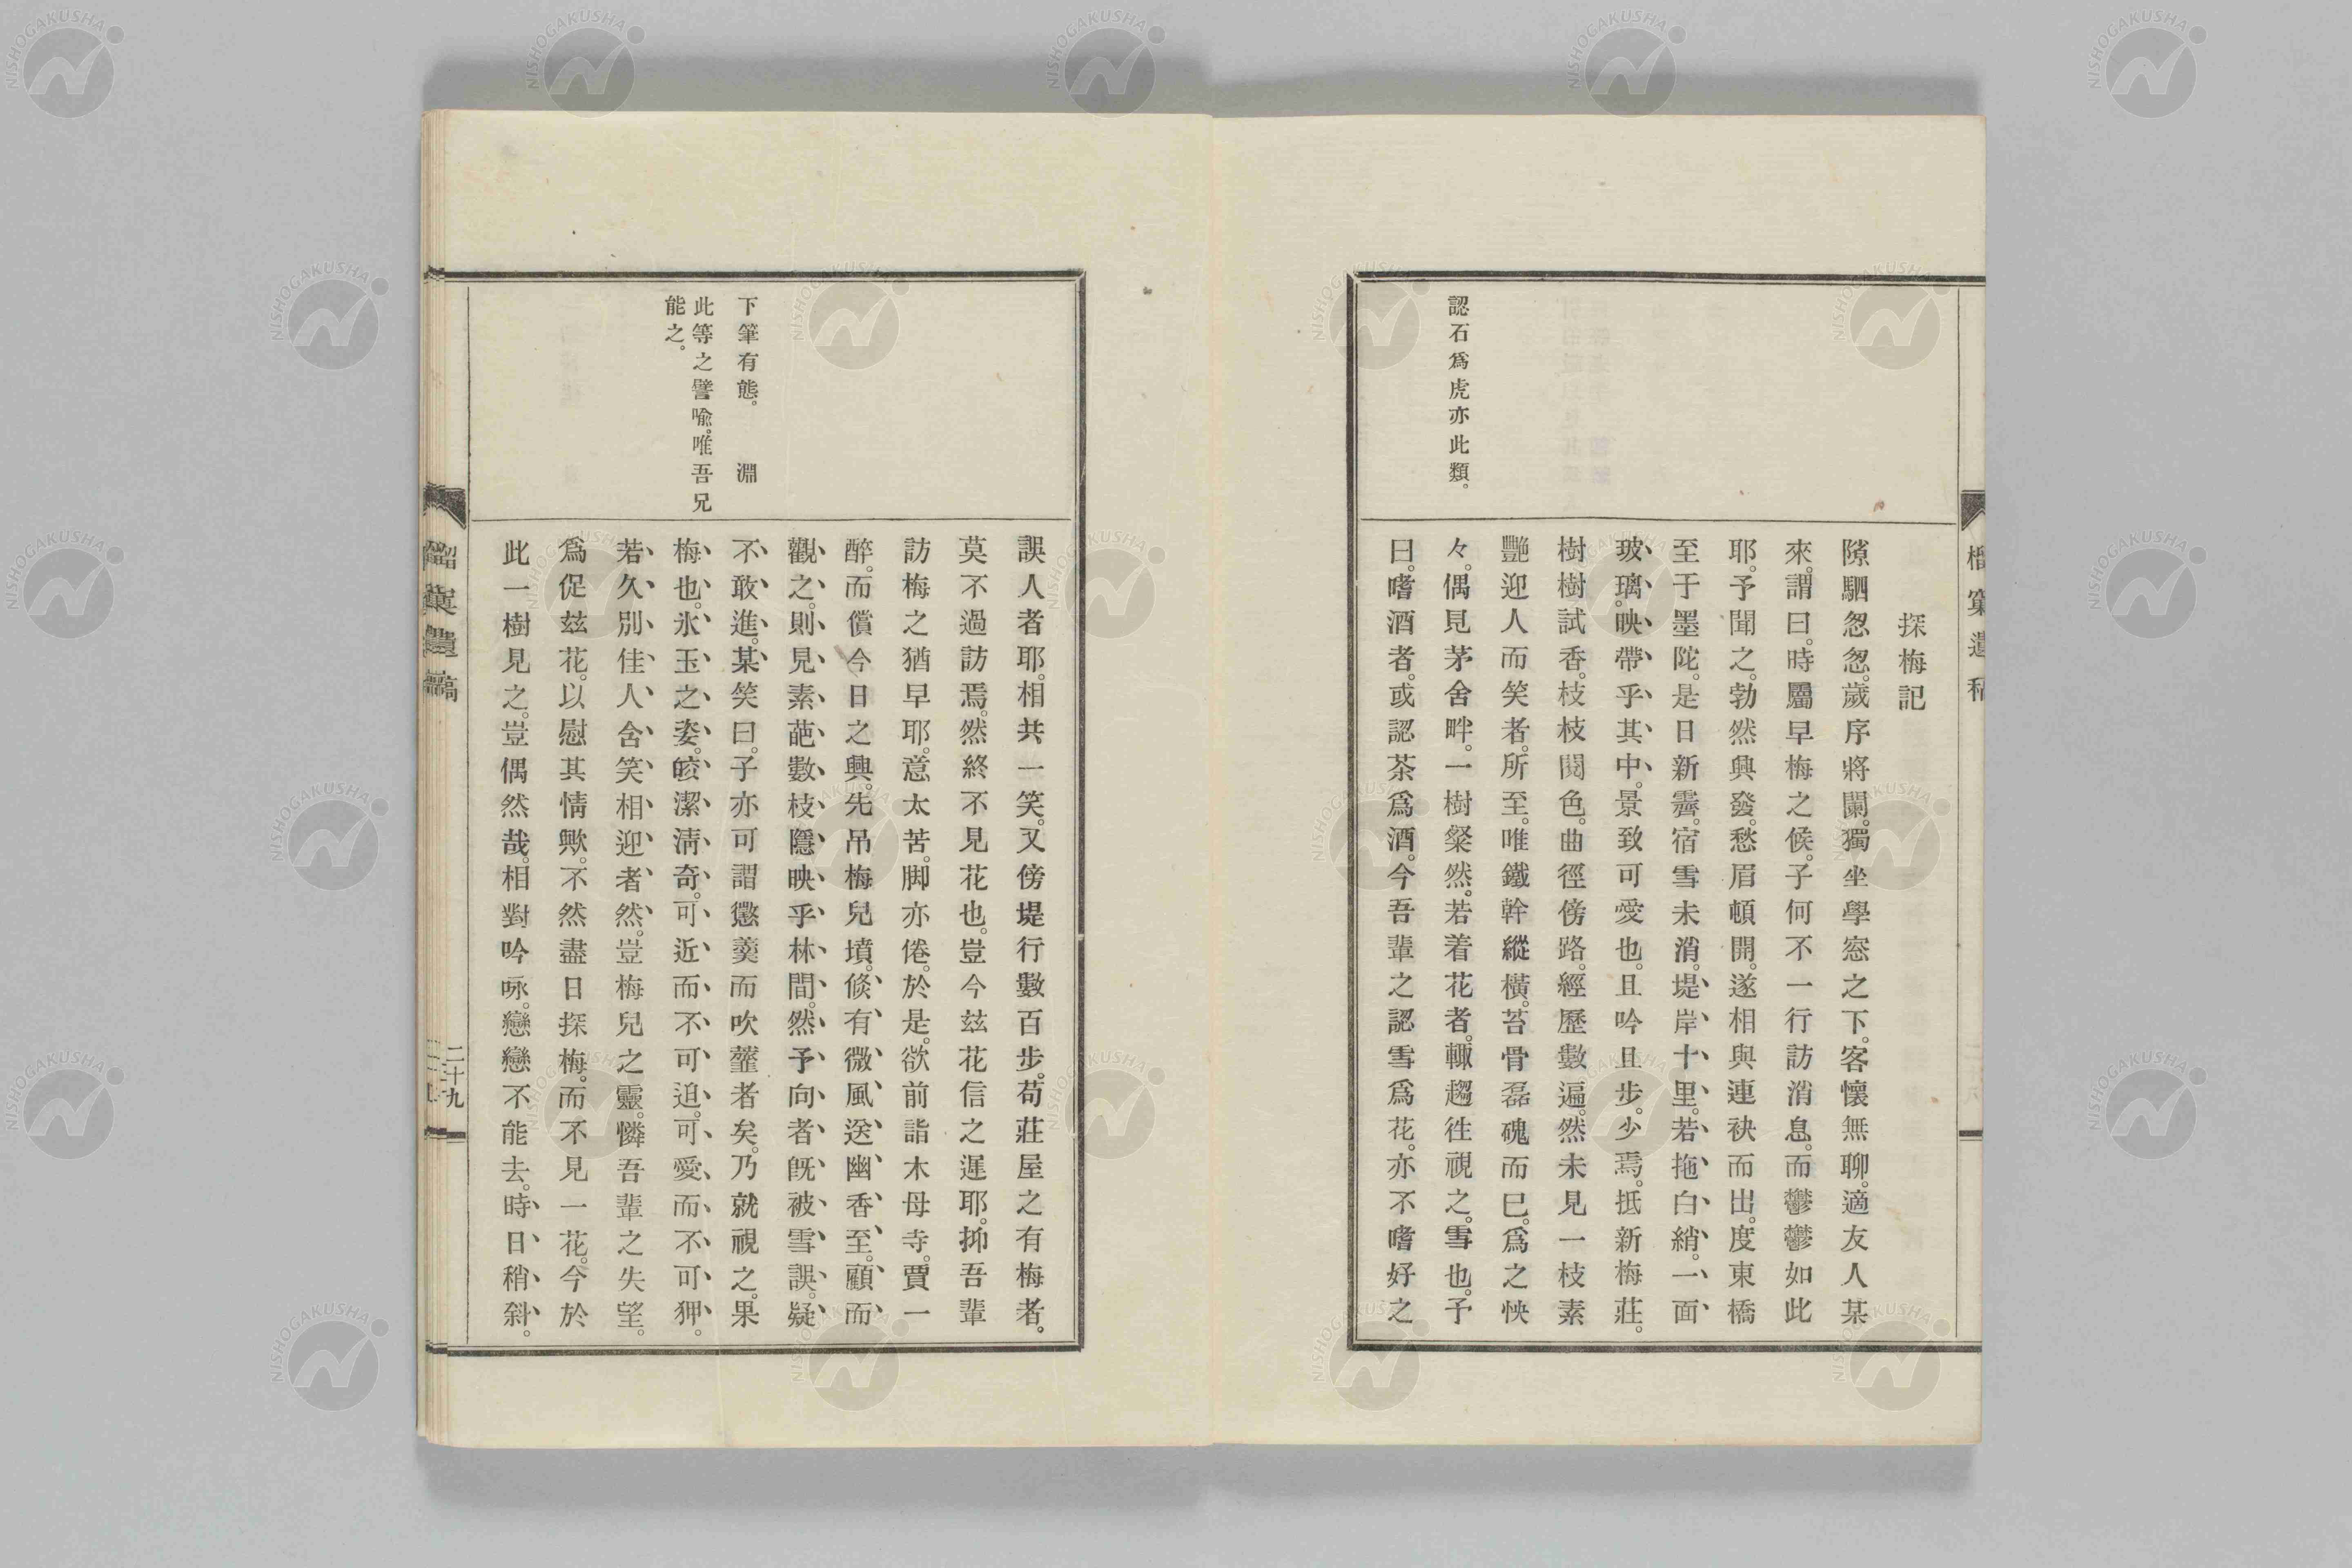 探梅記
隙駟忽忽。歲序將闌。獨坐學窓之下。客懷無聊。適友人某
來。謂曰。時屬早梅之候。子何不一行訪消息。而鬱鬱如此
耶。予聞之。勃然興發。愁眉頓開。遂相與連袂而出。度東橋
至于墨陀。是日新霽。宿雪未消。堤岸十里。若拖白綃。一面
玻璃。映帶乎其中。景致可愛也。且吟且步。少焉。抵新梅莊。
樹樹試香。枝枝閱色。曲徑傍路。經歷數遍。然未見一枝素
艷迎人而笑者。所至。唯鐵幹縱橫。苔骨磊磈而已。爲之怏
々。偶見茅舍畔。一樹粲然。若着花者。輙趨徃視之。雪也。予
曰。嗜酒者。或認茶爲酒。今吾輩之認雪爲花。亦不嗜好之
認石爲虎亦此類。
誤人者耶。相共一笑。又傍堤行數百步。苟莊屋之有梅者。
莫不過訪焉。然終不見花也。豈今玆花信之遲耶。抑吾輩
訪梅之猶早耶。意太苦。脚亦倦。於是。欲前詣木母寺。賈一
醉。而償今日之興。先吊梅兒墳。倏有微風送幽香至。顧而
觀之。則見素葩數枝隱映乎林間。然予向者既被雪誤。疑
不敢進。某笑曰。子亦可謂懲羹而吹虀者矣。乃就視之。果
梅也。氷玉之姿。皎潔淸奇。可近而不可迫。可愛而不可狎。
若久別佳人含笑相迎者然。豈梅兒之靈。憐吾輩之失望。
爲促玆花。以慰其情歟。不然盡日探梅。而不見一花。今於
此一樹見之。豈偶然哉。相對吟咏。戀戀不能去。時日稍斜。
下筆有態。 淵
此等之譬喩。唯吾兄
能之。
二十九